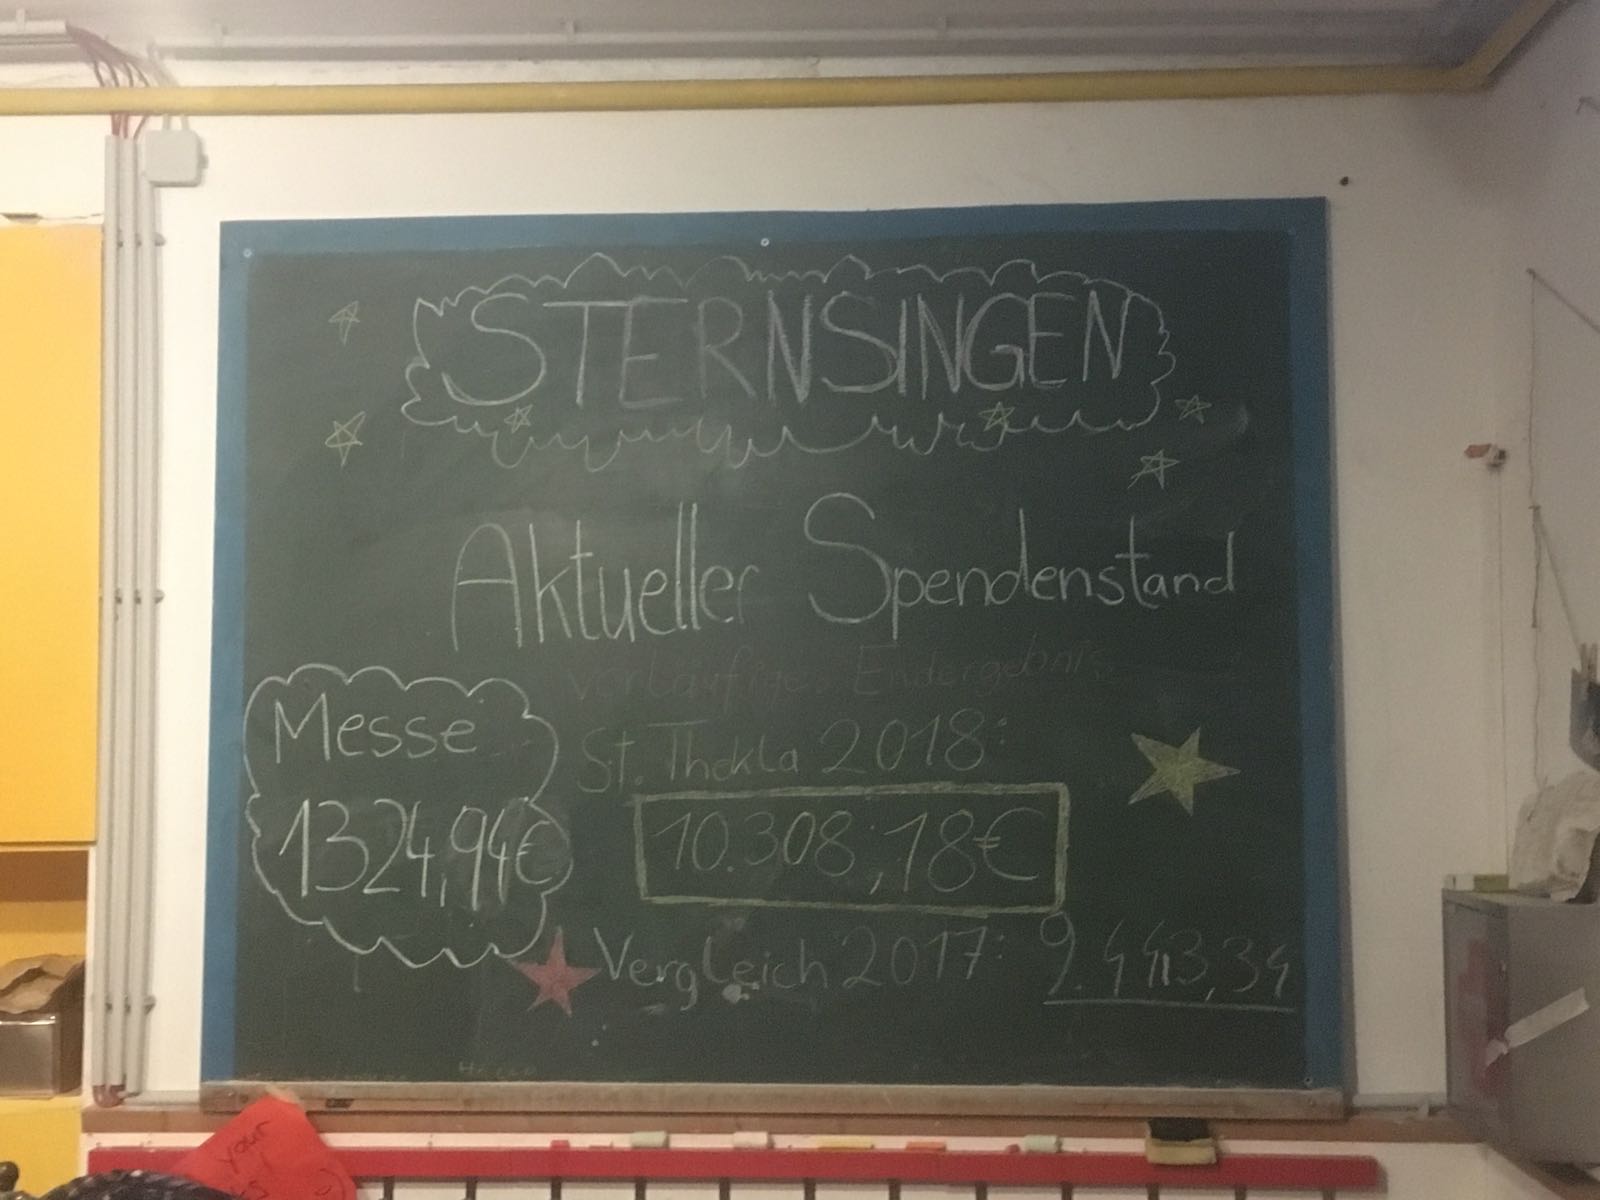 STERNSINGEN
Aktueller Spendenstand
vorläufiges Endergebnis
Messe
1324,94€
St. Thekla 2018:
10.308,18€
Vergleich 2017: 9.443,34
your